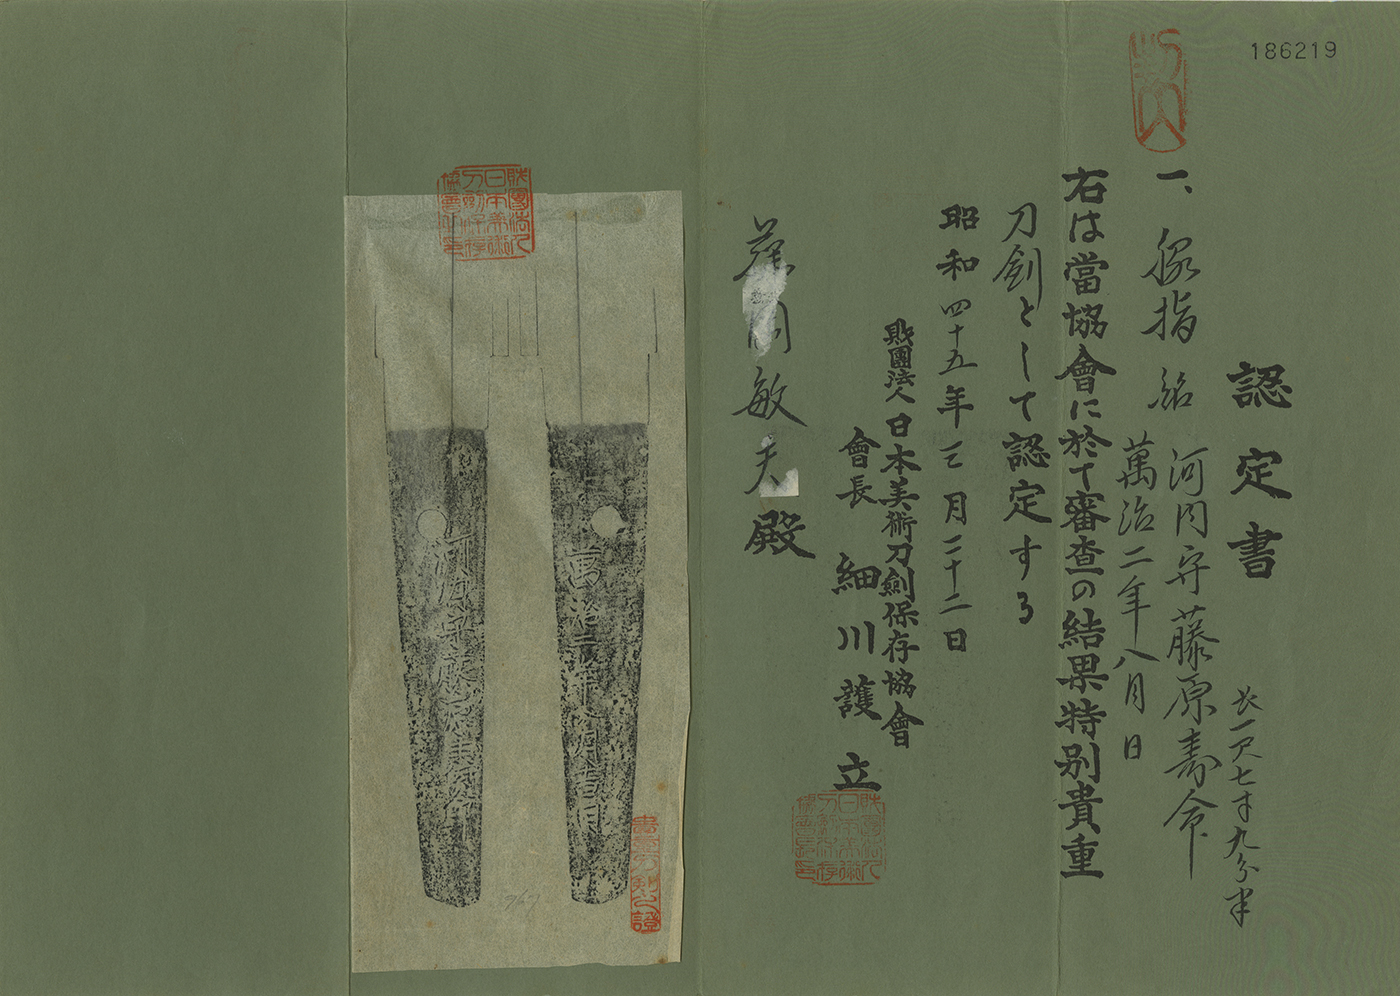 186219
認定書
一、脇指 銘 河内守藤原寿命
萬治二年八月日
長一尺七寸九分半
右は當協會に於て審査の結果特別貴重
刀劍として認定する
昭和四十五年三月二十二日
財團法人日本美術刀劍保存協會
會長 細川護立
敏夫殿
財團法人日本美術刀劍保存協會長之印
萬治二年八月吉日
河内守藤原寿命
貴重刀剣之證
767